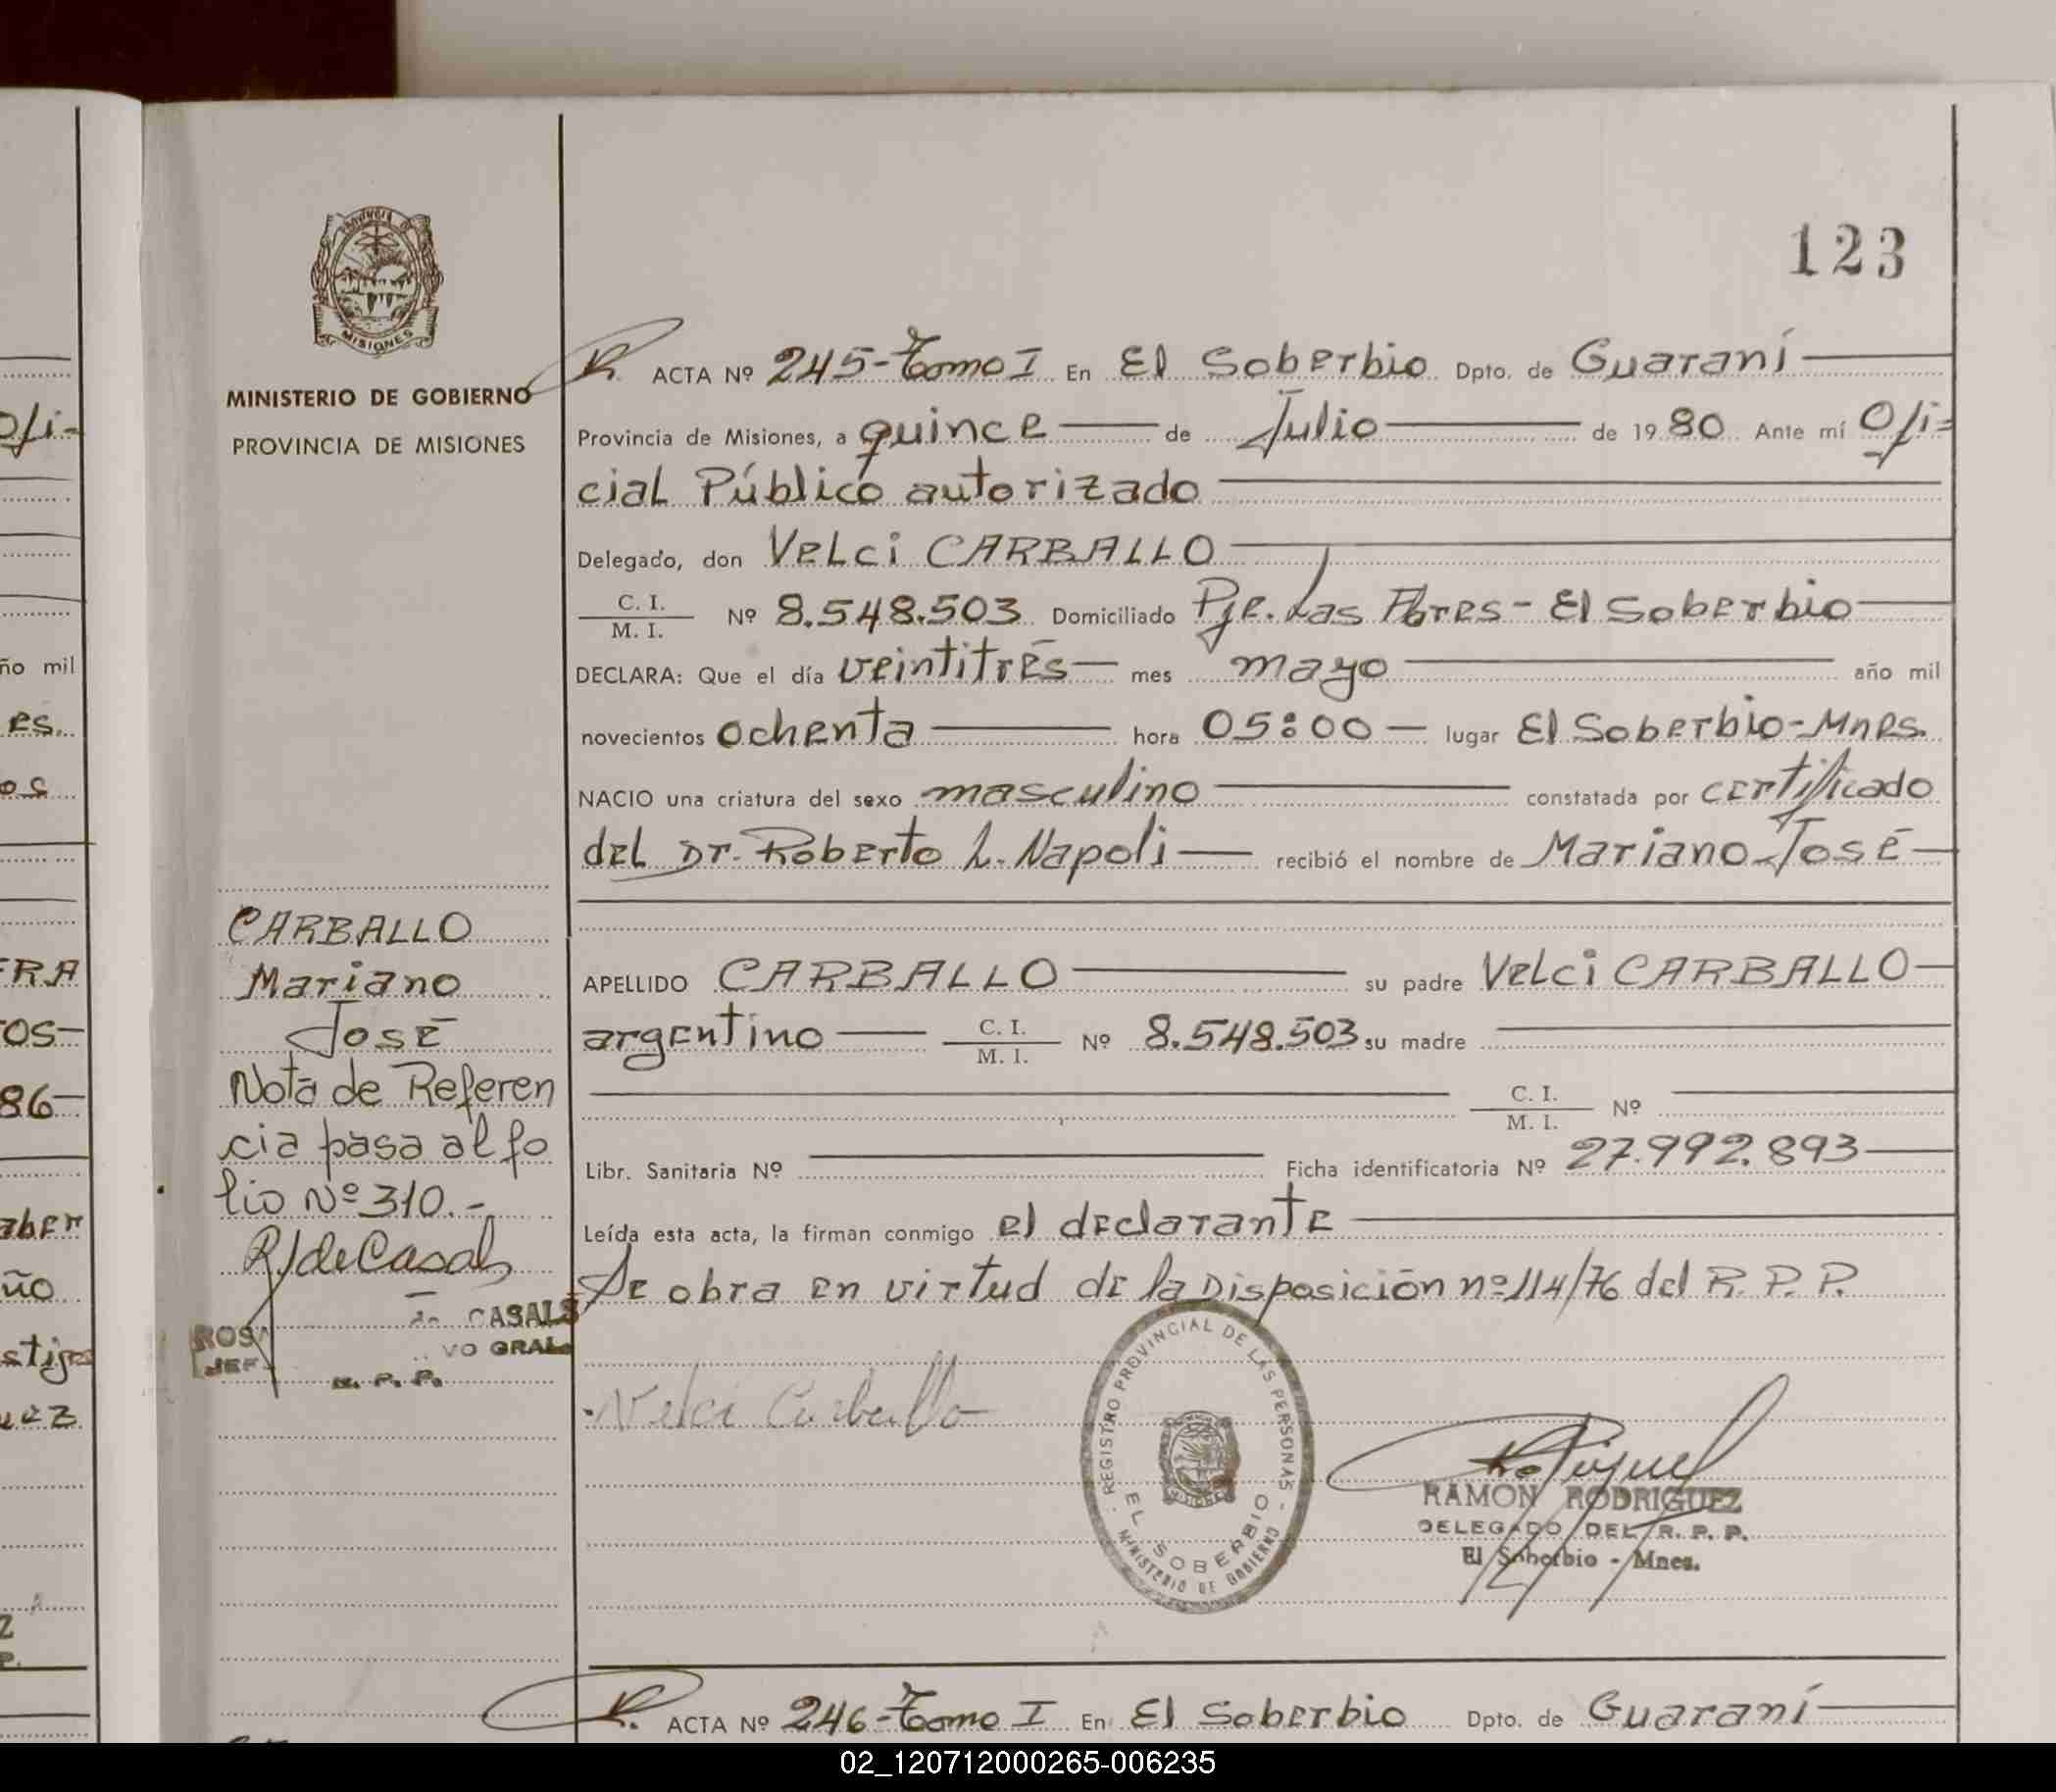 123
MINISTERIO DE GOBIERNO
PROVINCIA DE MISIONES
ACTA Nº 245-Tomo I En El Soberbio Dpto. de Guaraní
Provincia de Misiones, a quince de Julio de 1980 Ante mí Ofi=
cial Público autorizado
Delegado, don Velci CARBALLO
C. I.
M. I. Nº 8.548.503 Domiciliado Pje. Las Flores - El Soberbio
DECLARA: Que el día veintitrés mes mayo año mil
novecientos ochenta hora 05:00 lugar El Soberbio-Mnes.
NACIO una criatura del sexo masculino constatada por certificado
del Dr. Roberto L. Napoli recibió el nombre de Mariano José
APELLIDO CARBALLO su padre Velci CARBALLO
argentino C. I.
M. I. Nº 8.548.503 su madre
C. I.
M. I. Nº
Libr. Sanitaria Nº Ficha identificatoria Nº 27.992.893
Leída esta acta, la firman conmigo el declarante
Se obra en virtud de la Disposición nº 114/76 del R. P. P.
Velci Carballo
REGISTRO PROVINCIAL DE LAS PERSONAS
EL SOBERBIO
MINISTERIO DE GOBIERNO
RAMON RODRIGUEZ
DELEGADO DEL R. P. P.
El Soberbio - Mnes.
CARBALLO
Mariano
José
Nota de Referen
cia pasa al fo
lio Nº 310.-
R/deCasals
CASALS
VO GRAL.
R. P. P.
ACTA Nº 246-Tomo I En El Soberbio Dpto. de Guaraní
Ofi-
ño mil
es.
os
86
ño
02_120712000265-006235